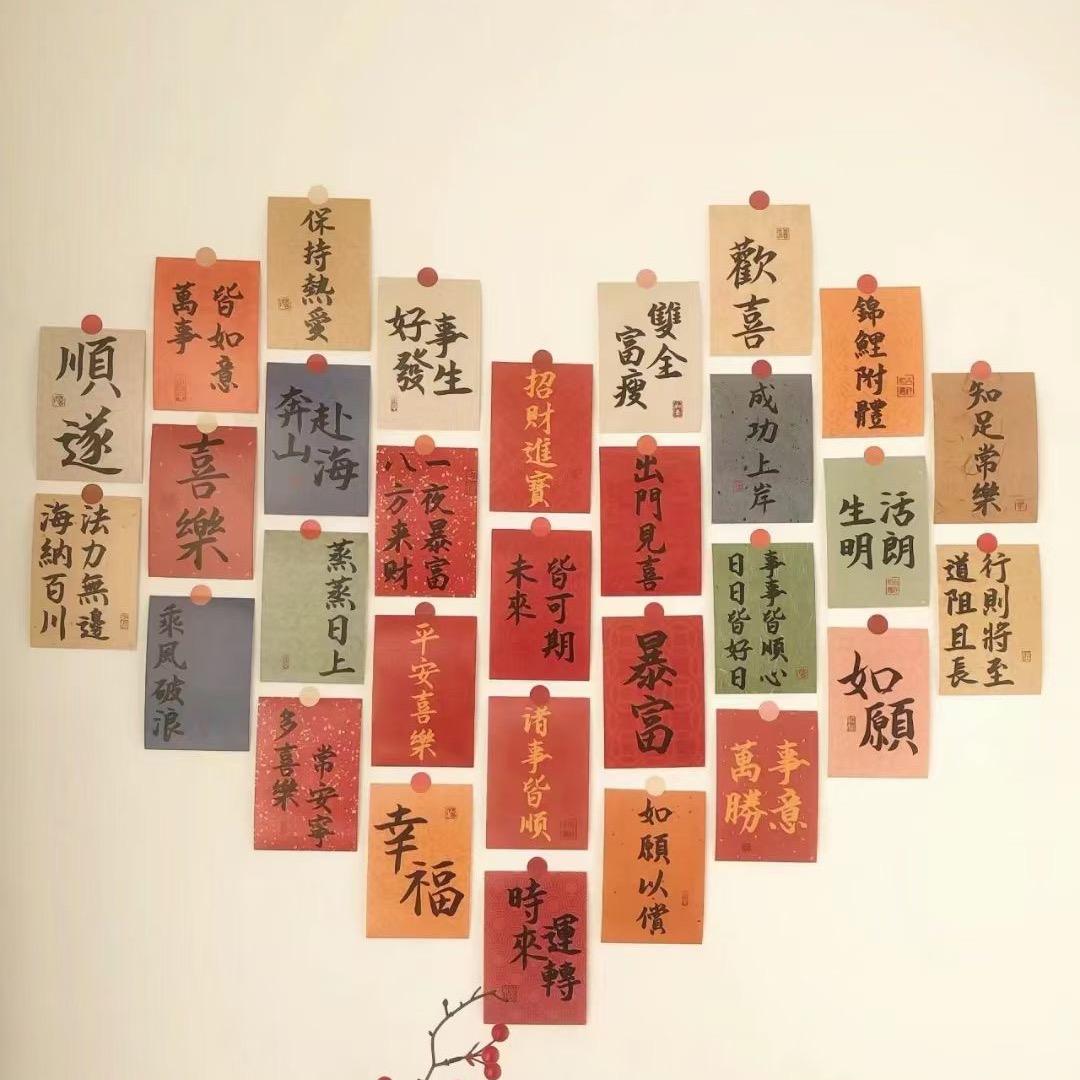 順遂
法力無邊
海納百川
萬事
皆如意
喜樂
乘風破浪
保持熱愛
奔山
赴海
蒸蒸日上
多喜樂
常安寧
好事
發生
一夜暴富
八方来财
平安喜樂
幸福
招財進寶
未來
皆可期
诸事皆顺
時來
運轉
富瘦
雙全
出門見喜
暴富
如願以償
歡喜
成功上岸
事事皆順心
日日皆好日
萬事
勝意
錦鯉附體
生活
明朗
如願
知足常樂
道阻且長
行則將至